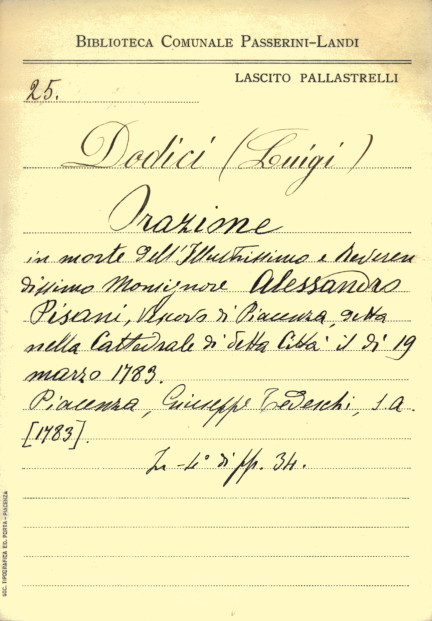 BIBLIOTECA COMUNALE PASSERINI-LANDI
LASCITO PALLASTRELLI
25.
Dodici (Luigi)
Orazione
in morte dell'Illustrissimo e Reveren
dissimo Monsignore Alessandro
Pisani, Vescovo di Piacenza, detta
nella Cattedrale di detta Città il dì 19
marzo 1783.
Piacenza, Giuseppe Tedeschi, s.a.
[1783].
In-4° di pp. 34.
SOC. TIPOGRAFICA ED. PORTA-PIACENZA